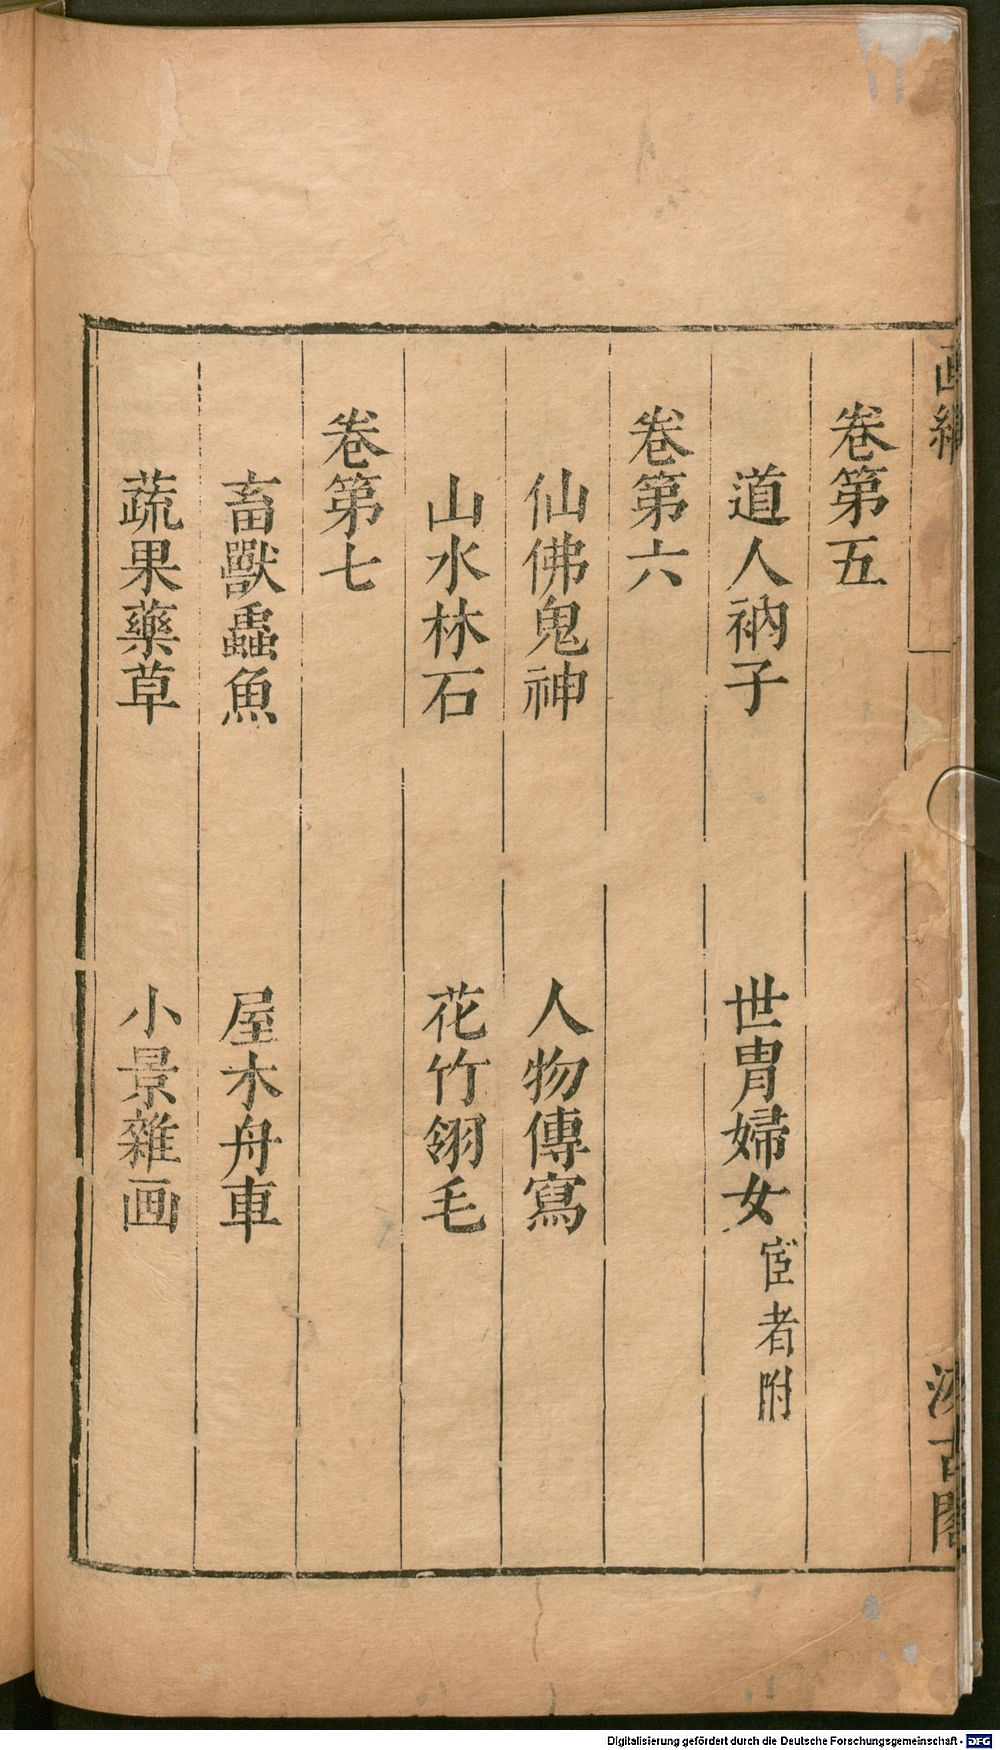 画繼
卷第五
道人衲子　世冑婦女宦者附
卷第六
仙佛鬼神　人物傳寫
山水林石　花竹翎毛
卷第七
畜獸蟲魚　屋木舟車
蔬果藥草　小景雜画
汲古閣
Digitalisierung gefördert durch die Deutsche Forschungsgemeinschaft - DFG